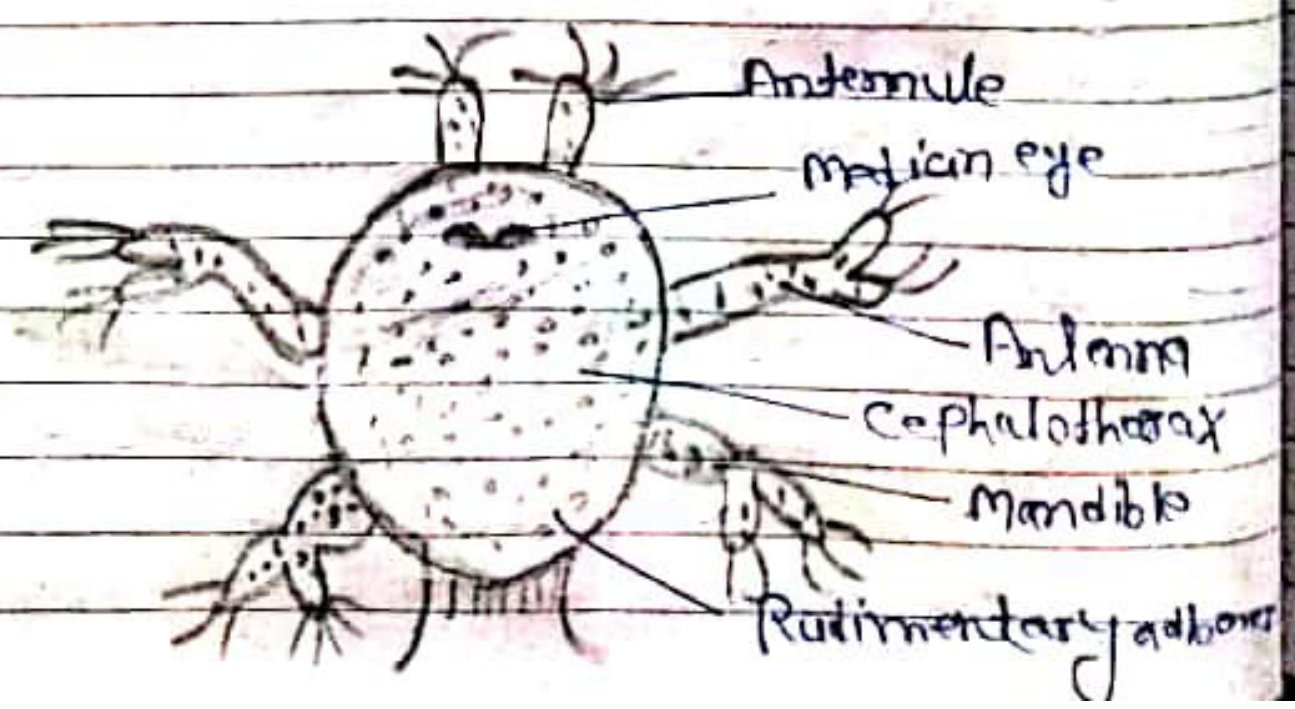 Antennule
Median eye
Antenna
Cephalothorax
Mandible
Rudimentary